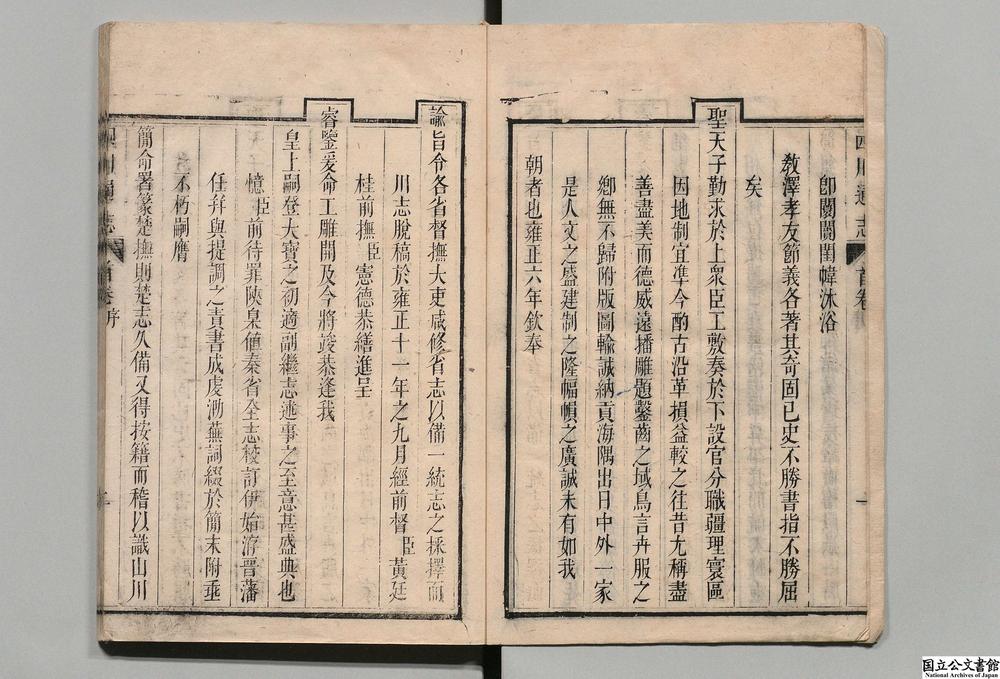 四川通志
首卷序
即閿闤閨幃沐浴
教澤孝友節義各著其奇固已史不勝書指不勝屈
矣
聖天子勤求於上衆臣工敷奏於下設官分職疆理寰區
因地制宜準今酌古沿革損益較之往昔尤稱盡
善盡美而德威遠播雕題鑿齒之域鳥言卉服之
鄉無不歸附版圖輸誠納貢海隅出日中外一家
是人文之盛建制之隆幅幀之廣誠未有如我
朝者也雍正六年欽奉
諭旨令各省督撫大吏咸修省志以備一統志之採擇而
川志脫稿於雍正十一年之九月經前督臣黃廷
桂前撫臣憲德恭繕進呈
睿鑒爰命工雕開及今將竣恭逢我
皇上嗣登大寶之初適副繼志述事之至意甚盛典也
憶臣前待罪陝臬值秦省全志校訂伊始洊晉藩
任幷與提調之責書成虔泐蕪詞綴於簡末附垂
不朽嗣膺
簡命署篆楚撫則楚志久備又得按籍而稽以識山川
四川通志
首卷序
二
国立公文書館
National Archives of Japan